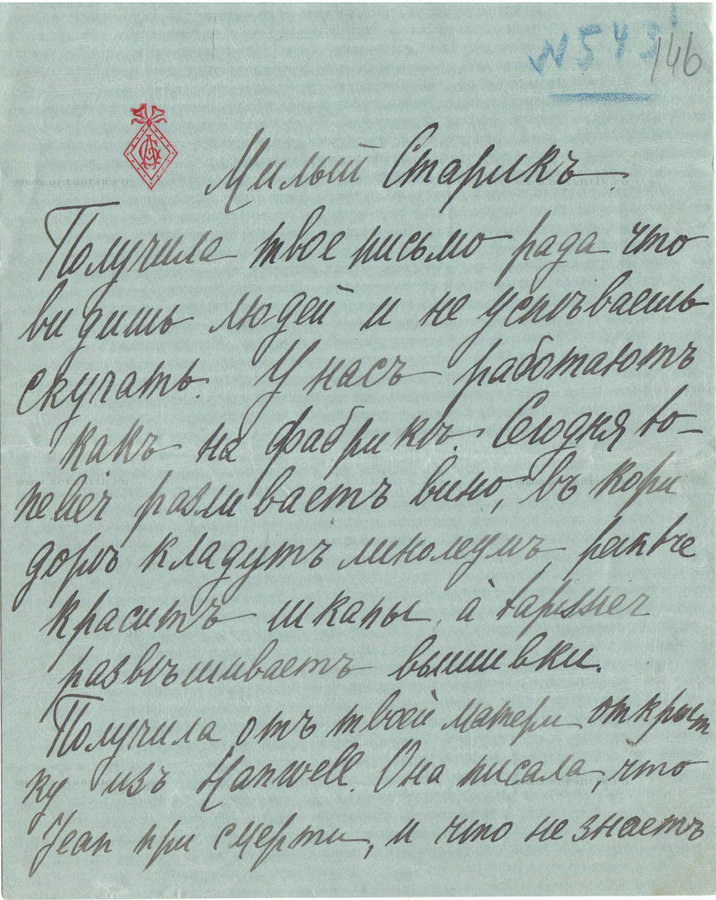 N 543
146
Милый Старикъ.
Получила твое письмо рада что
видишь людей и не успѣваешь
скучать. У насъ работаютъ
какъ на фабрикѣ. Сегодня to-
nelier разливаетъ вино, въ кори
дорѣ кладутъ линолеумъ,
краситъ шкапы, à tapissier
развѣшиваетъ вышивки.
Получила отъ твоей матери открыт
ку изъ Hanwell. Она писала, что
Jean при смерти, и что не знаетъ